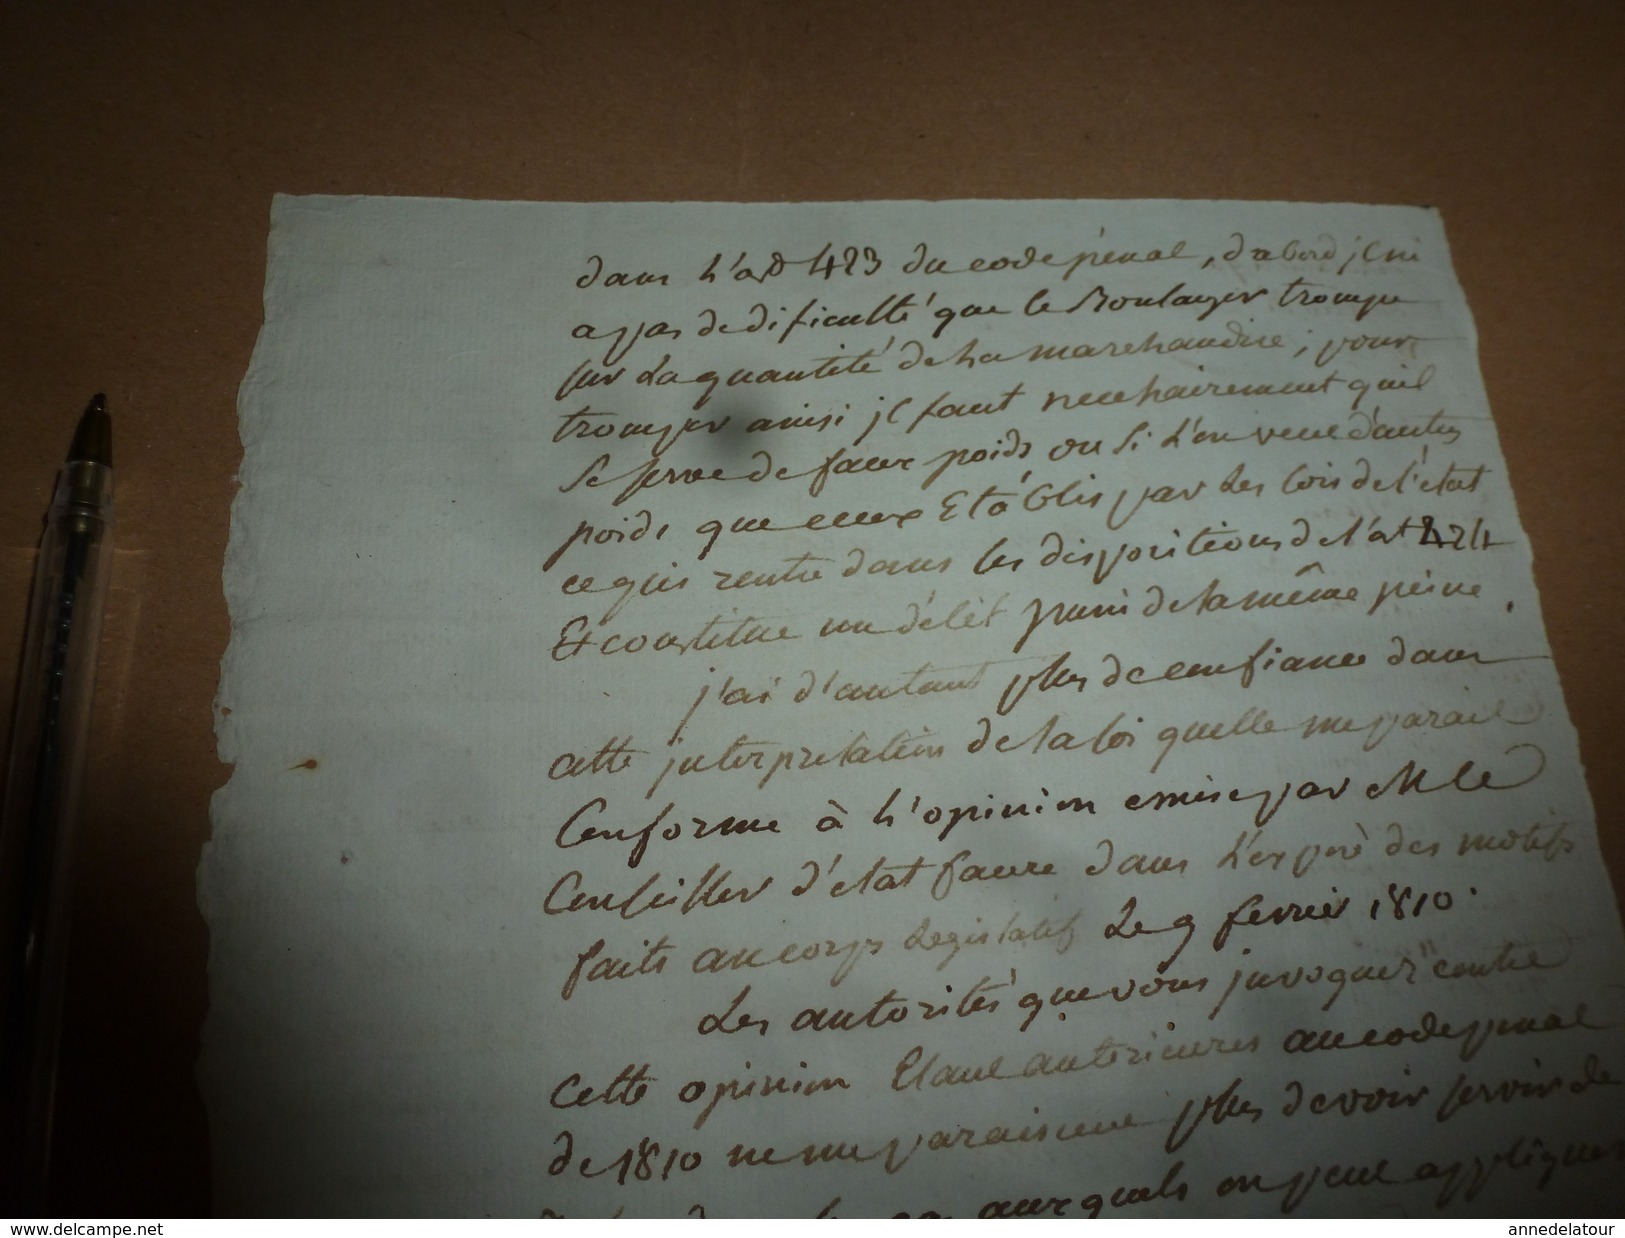 dans l'art 423 du code pénal, d'abord il ni
a pas de dificulté que le Boulanger trompe
sur la quantité de la marchandise; pour
tromper ainsi il faut necessairement quil
se serve de faux poids ou si l'on veut d'autres
poids que ceux Etablis par les lois de l'état
ce qui rentre dans les dispositions de l'art 424
Et constitue un délit puni de la même peine.
j'ai d'autant plus de confiance dans
cette interpretation de la loi quelle me parait
Conforme à l'opinion emise par M le
Conseiller d'etat faure dans l'exposé des motifs
faits au corps Legislatif Le 9 fevrier 1810.
Les autorités que vous invoquez contre
cette opinion Etant anterieures au code penal
de 1810 ne me paraissent plus devoir servir de
auxquels on peut appliquer
www.delcampe.net
annedelatour